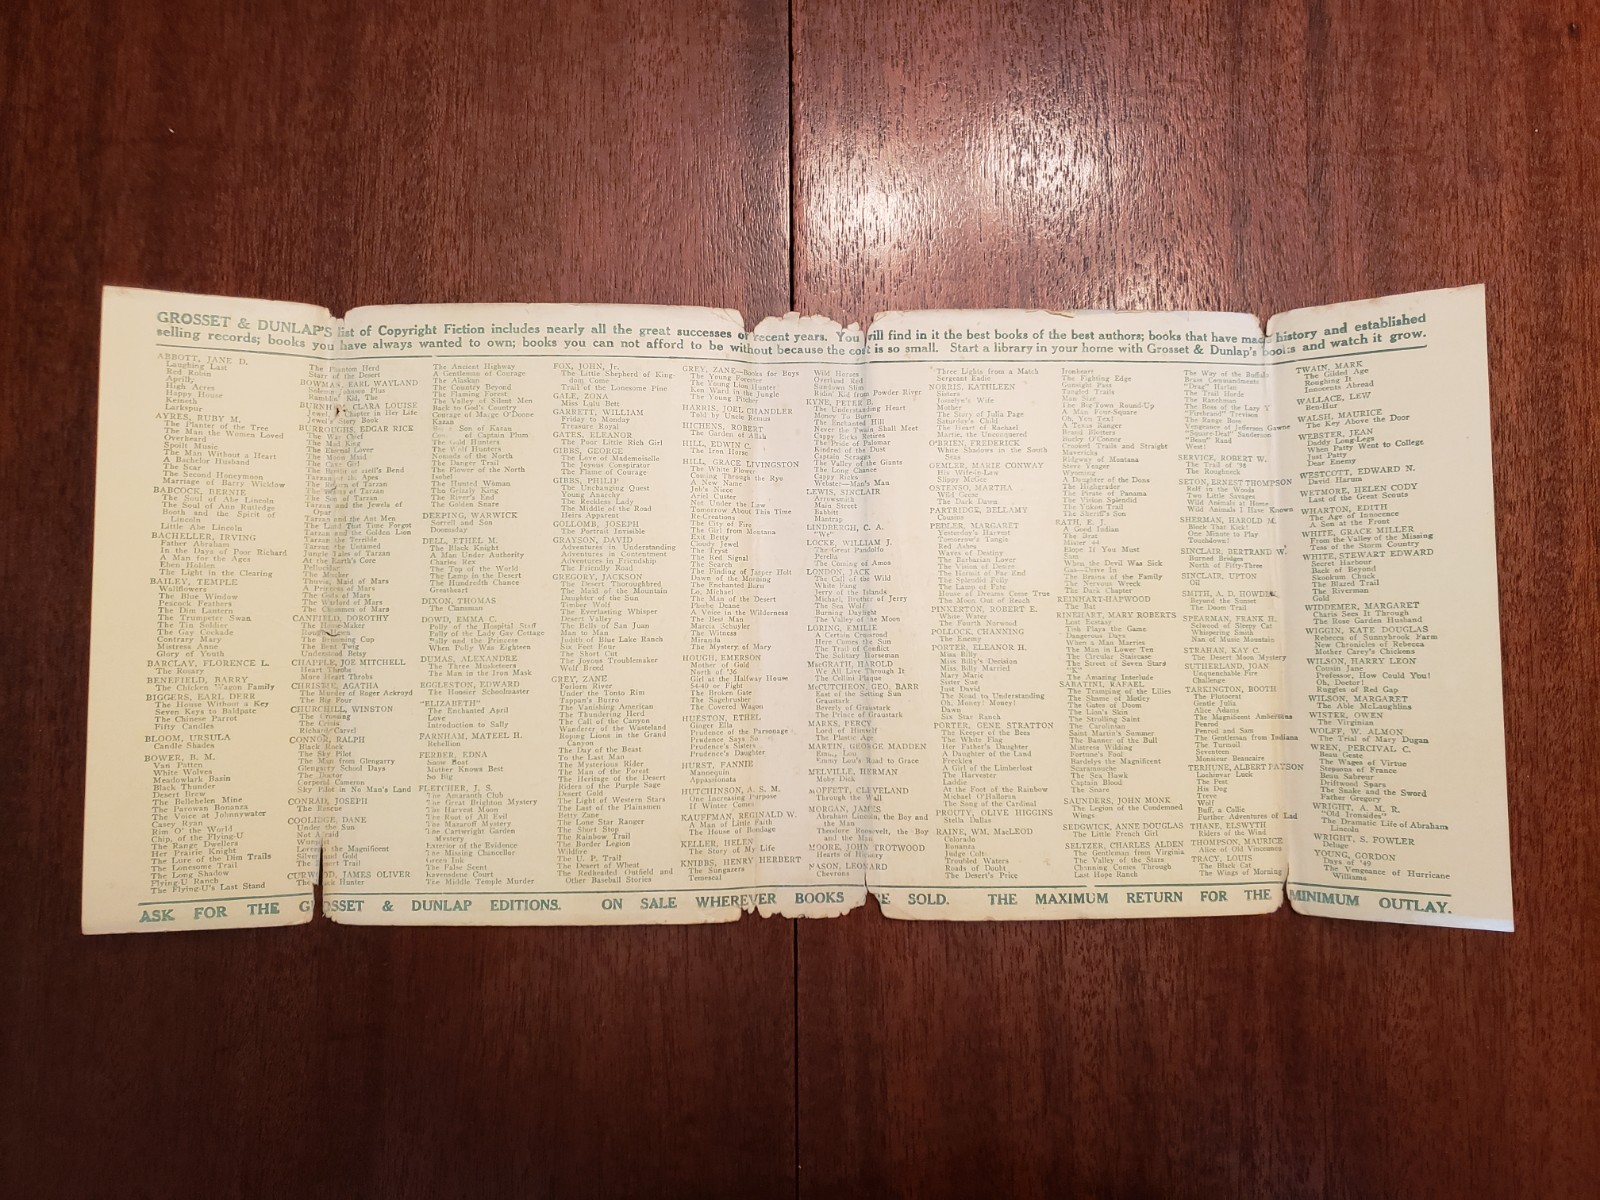 GROSSET & DUNLAP'S list of Copyright Fiction includes nearly all the great successes of recent years. You will find in it the best books of the best authors; books that have made history and established
selling records; books you have always wanted to own; books you can not afford to be without because the cost is so small. Start a library in your home with Grosset & Dunlap's books and watch it grow.
ABBOTT, JANE D.
Laughing Last
Red Robin
Aprilly
High Acres
Happy House
Keineth
Larkspur
AYRES, RUBY M.
The Planter of the Tree
The Man the Women Loved
Overheard
Spoilt Music
The Man Without a Heart
A Bachelor Husband
The Scar
The Second Honeymoon
Marriage of Barry Wicklow
BABCOCK, BERNIE
The Soul of Abe Lincoln
The Soul of Ann Rutledge
Booth and the Spirit of
Lincoln
Little Abe Lincoln
BACHELLER, IRVING
Father Abraham
In the Days of Poor Richard
A Man for the Ages
Eben Holden
The Light in the Clearing
BAILEY, TEMPLE
Wallflowers
The Blue Window
Peacock Feathers
The Dim Lantern
The Trumpeter Swan
The Tin Soldier
The Gay Cockade
Contrary Mary
Mistress Anne
Glory of Youth
BARCLAY, FLORENCE L.
The Rosary
BENEFIELD, BARRY
The Chicken Wagon Family
BIGGERS, EARL DERR
The House Without a Key
Seven Keys to Baldpate
The Chinese Parrot
Fifty Candles
BLOOM, URSULA
Candle Shades
BOWER, B. M.
Van Patten
White Wolves
Meadowlark Basin
Black Thunder
Desert Brew
The Bellehelen Mine
The Parowan Bonanza
The Voice at Johnnywater
Casey Ryan
Rim O' the World
Chip, of the Flying-U
The Range Dwellers
Her Prairie Knight
The Lure of the Dim Trails
The Lonesome Trail
The Long Shadow
Flying-U Ranch
The Flying-U's Last Stand
The Phantom Herd
Starr of the Desert
BOWMAN, EARL WAYLAND
Ramblin' Kid, The
BURNHAM, CLARA LOUISE
Jewel, A Chapter in Her Life
Jewel's Story Book
BURROUGHS, EDGAR RICE
The War Chief
The Mad King
The Eternal Lover
The Moon Maid
The Cave Girl
Tarzan of the Apes
The Return of Tarzan
The Beasts of Tarzan
The Son of Tarzan
Tarzan and the Jewels of
Opar
Tarzan and the Ant Men
The Land That Time Forgot
Tarzan and the Golden Lion
Tarzan the Terrible
Tarzan the Untamed
Jungle Tales of Tarzan
At the Earth's Core
Pellucidar
The Mucker
Thuvia, Maid of Mars
A Princess of Mars
The Gods of Mars
The Warlord of Mars
The Chessmen of Mars
CANFIELD, DOROTHY
The Home-Maker
The Brimming Cup
The Bent Twig
Understood Betsy
CHAPPLE, JOE MITCHELL
Heart Throbs
More Heart Throbs
CHRISTIE, AGATHA
The Murder of Roger Ackroyd
The Big Four
CHURCHILL, WINSTON
The Crossing
The Crisis
Richard Carvel
CONNOR, RALPH
Black Rock
The Sky Pilot
The Man from Glengarry
Glengarry School Days
The Doctor
Corporal Cameron
Sky Pilot in No Man's Land
CONRAD, JOSEPH
The Rescue
COOLIDGE, DANE
Under the Sun
Not Afraid
Lorenzo the Magnificent
Silver and Gold
CURWOOD, JAMES OLIVER
The Ancient Highway
A Gentleman of Courage
The Alaskan
The Country Beyond
The Flaming Forest
The Valley of Silent Men
Back to God's Country
Kazan
The Gold Hunters
The Wolf Hunters
Nomads of the North
The Danger Trail
The Flower of the North
Isobel
The Hunted Woman
The Grizzly King
The River's End
The Golden Snare
DEEPING, WARWICK
Sorrell and Son
Doomsday
DELL, ETHEL M.
The Black Knight
A Man Under Authority
Charles Rex
The Top of the World
The Lamp in the Desert
The Hundredth Chance
Greatheart
DIXON, THOMAS
The Clansman
DOWD, EMMA C.
Polly of the Hospital Staff
Polly of the Lady Gay Cottage
Polly and the Princess
When Polly Was Eighteen
DUMAS, ALEXANDRE
The Three Musketeers
The Man in the Iron Mask
EGGLESTON, EDWARD
The Hoosier Schoolmaster
"ELIZABETH"
The Enchanted April
Love
Introduction to Sally
FARNHAM, MATEEL H.
Rebellion
FERBER, EDNA
Show Boat
Mother Knows Best
So Big
FLETCHER, J. S.
The Amaranth Club
The Harvest Moon
The Great Brighton Mystery
The Root of All Evil
The Mazaroff Mystery
The Cartwright Garden
Mystery
Exterior of the Evidence
The Missing Chancellor
Green Ink
The False Scent
Ravensdene Court
The Middle Temple Murder
FOX, JOHN, Jr.
The Little Shepherd of King-
dom Come
Trail of the Lonesome Pine
GALE, ZONA
Miss Lulu Bett
GARRETT, WILLIAM
Treasure Royal
GATES, ELEANOR
The Poor Little Rich Girl
GIBBS, GEORGE
The Love of Mademoiselle
The Joyous Conspirator
The Flame of Courage
GIBBS, PHILIP
The Unchanging Quest
Young Anarchy
The Reckless Lady
The Middle of the Road
Heirs Apparent
GOLLOMB, JOSEPH
The Portrait Invisible
GRAYSON, DAVID
Adventures in Understanding
Adventures in Contentment
Adventures in Friendship
The Friendly Road
GREGORY, JACKSON
The Desert Thoroughbred
The Maid of the Mountain
Daughter of the Sun
Timber Wolf
The Everlasting Whisper
Desert Valley
The Bells of San Juan
Man to Man
Judith of Blue Lake Ranch
Six Feet Four
The Short Cut
The Joyous Troublemaker
Wolf Breed
GREY, ZANE
Forlorn River
Under the Tonto Rim
Tappan's Burro
The Vanishing American
The Thundering Herd
The Call of the Canyon
Wanderer of the Wasteland
Roping Lions in the Grand
Canyon
The Day of the Beast
To the Last Man
The Mysterious Rider
The Man of the Forest
The Heritage of the Desert
Riders of the Purple Sage
Desert Gold
The Light of Western Stars
The Last of the Plainsmen
Betty Zane
The Lone Star Ranger
The Short Stop
The Rainbow Trail
The Border Legion
Wildfire
The U. P. Trail
The Desert of Wheat
The Redheaded Outfield and
Other Baseball Stories
GREY, ZANE—Books for Boys
The Young Forester
The Young Lion Hunter
Ken Ward in the Jungle
The Young Pitcher
HARRIS, JOEL CHANDLER
Told by Uncle Remus
HICHENS, ROBERT
The Garden of Allah
HILL, EDWIN C.
The Iron Horse
HILL, GRACE LIVINGSTON
The White Flower
Coming Through the Rye
A New Name
Job's Niece
Ariel Custer
Not Under the Law
Tomorrow About This Time
Re-Creations
The City of Fire
The Girl from Montana
Exit Betty
Cloudy Jewel
The Tryst
The Red Signal
The Search
The Finding of Jasper Holt
Dawn of the Morning
The Enchanted Barn
Lo, Michael
The Man of the Desert
Phoebe Deane
A Voice in the Wilderness
The Best Man
Marcia Schuyler
The Witness
Miranda
The Mystery of Mary
HOUGH, EMERSON
Mother of Gold
North of '36
Girl at the Halfway House
54-40 or Fight
The Broken Gate
The Sagebrusher
The Covered Wagon
HUESTON, ETHEL
Ginger Ella
Prudence of the Parsonage
Prudence Says So
Prudence's Sisters
Prudence's Daughter
HURST, FANNIE
Mannequin
Appassionata
HUTCHINSON, A. S. M.
One Increasing Purpose
If Winter Comes
KAUFFMAN, REGINALD W.
A Man of Little Faith
The House of Bondage
KELLER, HELEN
The Story of My Life
KNIBBS, HENRY HERBERT
The Sungazers
Temescal
Wild Horses
Overland Red
Sundown Slim
Ridin' Kid from Powder River
KYNE, PETER B.
The Understanding Heart
Money To Burn
The Enchanted Hill
Never the Twain Shall Meet
Cappy Ricks Retires
The Pride of Palomar
Kindred of the Dust
Captain Scraggs
The Valley of the Giants
The Long Chance
Cappy Ricks
Webster—Man's Man
LEWIS, SINCLAIR
Arrowsmith
Main Street
Babbitt
Mantrap
LINDBERGH, C. A.
"We"
LOCKE, WILLIAM J.
The Great Pandolfo
Perella
The Coming of Amos
LONDON, JACK
The Call of the Wild
White Fang
Jerry of the Islands
Michael, Brother of Jerry
The Sea Wolf
Burning Daylight
The Valley of the Moon
LORING, EMILIE
A Certain Crossroad
Here Comes the Sun
The Trail of Conflict
The Solitary Horseman
MacGRATH, HAROLD
We All Live Through It
The Cellini Plaque
McCUTCHEON, GEO. BARR
East of the Setting Sun
Graustark
Beverly of Graustark
The Prince of Graustark
MARKS, PERCY
Lord of Himself
The Plastic Age
MARTIN, GEORGE MADDEN
Emmy Lou
Emmy Lou's Road to Grace
MELVILLE, HERMAN
Moby Dick
MOFFETT, CLEVELAND
Through the Wall
MORGAN, JAMES
Abraham Lincoln, the Boy and
the Man
Theodore Roosevelt, the Boy
and the Man
MOORE, JOHN TROTWOOD
Hearts of Hickory
NASON, LEONARD
Chevrons
Three Lights from a Match
Sergeant Eadie
NORRIS, KATHLEEN
Sisters
Josselyn's Wife
Mother
The Story of Julia Page
Saturday's Child
The Heart of Rachael
Martie, the Unconquered
O'BRIEN, FREDERICK
White Shadows in the South
Seas
OEMLER, MARIE CONWAY
His Wife-in-Law
Slippy McGee
OSTENSO, MARTHA
Wild Geese
The Dark Dawn
PARTRIDGE, BELLAMY
Cousins
PEDLER, MARGARET
Yesterday's Harvest
Tomorrow's Tangle
Red Ashes
Waves of Destiny
The Barbarian Lover
The Vision of Desire
The Hermit of Far End
The Splendid Folly
The Lamp of Fate
House of Dreams Come True
The Moon Out of Reach
PINKERTON, ROBERT E.
White Water
The Fourth Norwood
POLLOCK, CHANNING
The Enemy
PORTER, ELEANOR H.
Miss Billy
Miss Billy's Decision
Miss Billy Married
Mary Marie
Sister Sue
Just David
The Road to Understanding
Oh, Money! Money!
Dawn
Six Star Ranch
PORTER, GENE STRATTON
The Keeper of the Bees
The White Flag
Her Father's Daughter
A Daughter of the Land
Freckles
A Girl of the Limberlost
The Harvester
Laddie
At the Foot of the Rainbow
Michael O'Halloran
The Song of the Cardinal
PROUTY, OLIVE HIGGINS
Stella Dallas
RAINE, WM. MacLEOD
Colorado
Bonanza
Judge Colt
Troubled Waters
Roads of Doubt
The Desert's Price
Ironheart
The Fighting Edge
Gunsight Pass
Tangled Trails
Man Size
The Big Town Round-Up
A Man Four-Square
Oh, You Tex!
A Texas Ranger
Brand Blotters
Bucky O'Connor
Crooked Trails and Straight
Mavericks
Ridgway of Montana
Steve Yeager
Wyoming
A Daughter of the Dons
The Highgrader
The Pirate of Panama
The Vision Splendid
The Yukon Trail
The Sheriff's Son
RATH, E. J.
A Good Indian
The Brat
Elope If You Must
Sam
When the Devil Was Sick
Gas—Drive In
The Brains of the Family
The Nervous Wreck
The Dark Chapter
REINHART-HAPWOOD
The Bat
RINEHART, MARY ROBERTS
Lost Ecstasy
Tish Plays the Game
Dangerous Days
When a Man Marries
The Man in Lower Ten
The Circular Staircase
The Street of Seven Stars
"K"
The Amazing Interlude
SABATINI, RAFAEL
The Tramping of the Lilies
The Shame of Motley
The Gates of Doom
The Lion's Skin
The Strolling Saint
The Carolinian
Saint Martin's Summer
The Banner of the Bull
Mistress Wilding
Fortune's Fool
Bardelys the Magnificent
Scaramouche
The Sea Hawk
Captain Blood
The Snare
SAUNDERS, JOHN MONK
The Legion of the Condemned
Wings
SEDGWICK, ANNE DOUGLAS
The Little French Girl
SELTZER, CHARLES ALDEN
The Gentleman from Virginia
The Valley of the Stars
Channing Comes Through
Last Hope Ranch
The Way of the Buffalo
Brass Commandments
"Drag" Harlan
The Trail Horde
The Ranchman
The Boss of the Lazy Y
"Firebrand" Trevison
The Range Boss
Vengeance of Jefferson Gawne
"Square-Deal" Sanderson
"Beau" Rand
West!
SERVICE, ROBERT W.
The Trail of '98
The Roughneck
SETON, ERNEST THOMPSON
Rolf in the Woods
Two Little Savages
Wild Animals at Home
Wild Animals I Have Known
SHERMAN, HAROLD M.
Block That Kick!
One Minute to Play
Touchdown!
SINCLAIR, BERTRAND W.
Burned Bridges
North of Fifty-Three
SINCLAIR, UPTON
Oil
SMITH, A. D. HOWDEN
Beyond the Sunset
The Doom Trail
SPEARMAN, FRANK H.
Selwood of Sleepy Cat
Whispering Smith
Nan of Music Mountain
STRAHAN, KAY C.
The Desert Moon Mystery
SUTHERLAND, JOAN
Unquenchable Fire
Challenge
TARKINGTON, BOOTH
The Plutocrat
Gentle Julia
Alice Adams
The Magnificent Ambersons
Penrod
Penrod and Sam
The Gentleman from Indiana
The Turmoil
Seventeen
Monsieur Beaucaire
TERHUNE, ALBERT PAYSON
Lochinvar Luck
The Pest
His Dog
Treve
Wolf
Buff, a Collie
Further Adventures of Lad
THANE, ELSWYTH
Riders of the Wind
THOMPSON, MAURICE
Alice of Old Vincennes
TRACY, LOUIS
The Black Cat
The Wings of Morning
TWAIN, MARK
The Gilded Age
Roughing It
Innocents Abroad
WALLACE, LEW
Ben-Hur
WALSH, MAURICE
The Key Above the Door
WEBSTER, JEAN
Daddy Long-Legs
When Patty Went to College
Just Patty
Dear Enemy
WESTCOTT, EDWARD N.
David Harum
WETMORE, HELEN CODY
Last of the Great Scouts
WHARTON, EDITH
The Age of Innocence
A Son at the Front
WHITE, GRACE MILLER
From the Valley of the Missing
Tess of the Storm Country
WHITE, STEWART EDWARD
Secret Harbour
Back of Beyond
Skookum Chuck
The Blazed Trail
The Riverman
Gold
WIDDEMER, MARGARET
Charis Sees It Through
The Rose Garden Husband
WIGGIN, KATE DOUGLAS
Rebecca of Sunnybrook Farm
New Chronicles of Rebecca
Mother Carey's Chickens
WILSON, HARRY LEON
Cousin Jane
Professor, How Could You!
Oh, Doctor!
Ruggles of Red Gap
WILSON, MARGARET
The Able McLaughlins
WISTER, OWEN
The Virginian
WOLFF, W. ALMON
The Trial of Mary Dugan
WREN, PERCIVAL C.
Beau Geste
The Wages of Virtue
Stepsons of France
Beau Sabreur
Driftwood Spars
The Snake and the Sword
Father Gregory
WRIGHT, A. M. R.
"Old Ironsides"
The Dramatic Life of Abraham
Lincoln
WRIGHT, S. FOWLER
Deluge
YOUNG, GORDON
Days of '49
The Vengeance of Hurricane
Williams
ASK FOR THE GROSSET & DUNLAP EDITIONS. ON SALE WHEREVER BOOKS ARE SOLD. THE MAXIMUM RETURN FOR THE MINIMUM OUTLAY.